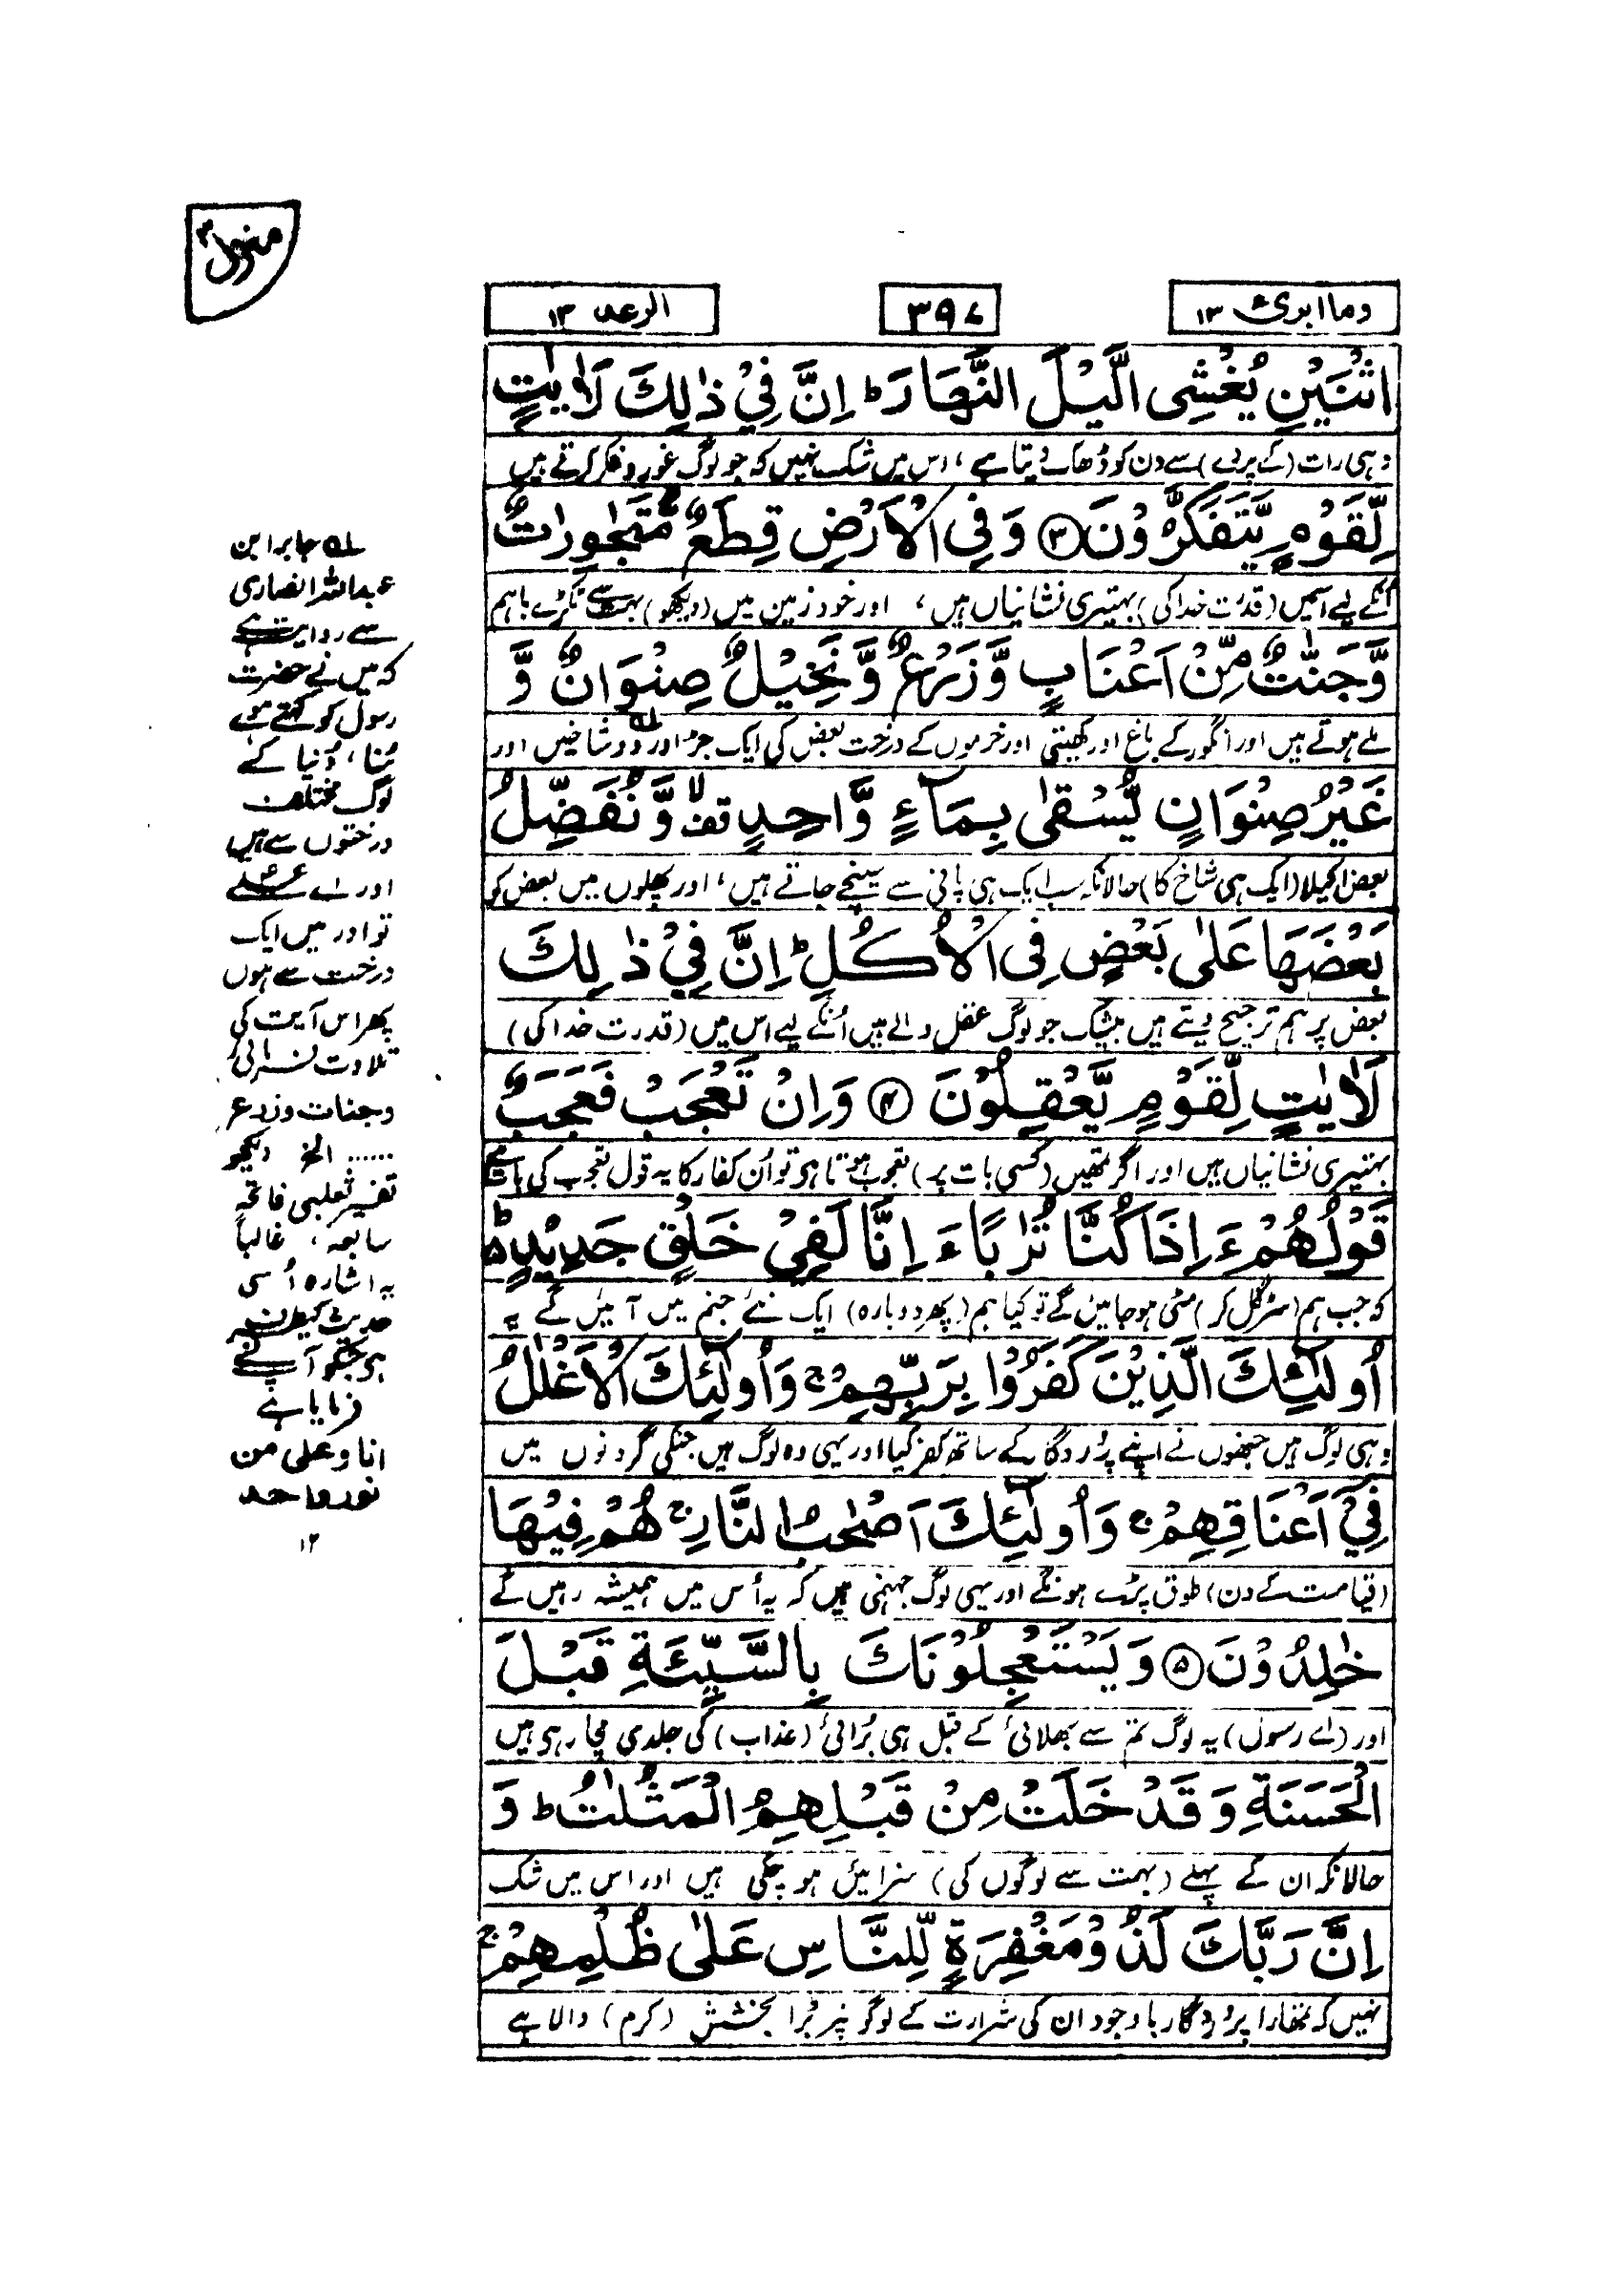 منزل ۳
وماابرئ ۱۳
۳۹۷
الرعد ۱۳
اثْنَيْنِ يُغْشِى الَّيْلَ النَّهَارَ ؕ اِنَّ فِيْ ذٰلِكَ لَاٰيٰتٍ
وہی رات (کے پردے) سے دن کو ڈھانپ دیتا ہے، اس میں شک نہیں کہ جو لوگ غور و فکر کرتے ہیں
لِّقَوْمٍ يَّتَفَكَّرُوْنَ ﴿۳﴾ وَفِي الْاَرْضِ قِطَعٌ مُّتَجٰوِرٰتٌ
انکے لیے اسمیں (قدرت خدا کی) بہتیری نشانیاں ہیں، اور خود زمین میں (دیکھو) بہت سے ٹکڑے باہم
وَّجَنّٰتٌ مِّنْ اَعْنَابٍ وَّزَرْعٌ وَّنَخِيْلٌ صِنْوَانٌ وَّ
ملے ہوتے ہیں اور انگور کے باغ اور کھیتی اور خرموں کے درخت بعض کی ایک جڑ اور دو شاخیں اور
غَيْرُ صِنْوَانٍ يُّسْقٰى بِمَآءٍ وَّاحِدٍ قف لا وَّنُفَضِّلُ
بعض اکیلا (ایک ہی شاخ کا) حالانکہ سب ایک ہی پانی سے سینچے جاتے ہیں، اور پھلوں میں بعض کو
بَعْضَهَا عَلٰى بَعْضٍ فِى الْاُكُلِ ؕ اِنَّ فِيْ ذٰلِكَ
بعض پر ہم ترجیح دیتے ہیں بیشک جو لوگ عقل والے ہیں اُنکے لیے اس میں (قدرت خدا کی)
لَاٰيٰتٍ لِّقَوْمٍ يَّعْقِلُوْنَ ﴿۴﴾ وَاِنْ تَعْجَبْ فَعَجَبٌ
بہتیری نشانیاں ہیں اور اگر تمھیں (کسی بات پر) تعجب ہوتا ہی تو اُن کفار کا یہ قول تعجب کی بات ہے
قَوْلُهُمْ ءَاِذَا كُنَّا تُرٰبًا ءَاِنَّا لَفِيْ خَلْقٍ جَدِيْدٍ ؕ ۵
کہ جب ہم (سڑ گل کر) مٹی ہو جائیں گے تو کیا ہم (پھر دوبارہ) ایک نئے جنم میں آئیں گے یہ
اُولٰٓئِكَ الَّذِيْنَ كَفَرُوْا بِرَبِّهِمْ ۚ وَاُولٰٓئِكَ الْاَغْلٰلُ
وہی لوگ ہیں جنھوں نے اپنے پروردگار کے ساتھ کفر کیا اور یہی وہ لوگ ہیں جنکی گردنوں میں
فِيْٓ اَعْنَاقِهِمْ ۚ وَاُولٰٓئِكَ اَصْحٰبُ النَّارِ ۚ هُمْ فِيْهَا
(قیامت کے دن) طوق پڑے ہونگے اور یہی لوگ جہنمی ہیں کہ یہ اُس میں ہمیشہ رہیں گے
خٰلِدُوْنَ ﴿۵﴾ وَيَسْتَعْجِلُوْنَكَ بِالسَّيِّئَةِ قَبْلَ
اور (اے رسول) یہ لوگ تم سے بھلائی کے قبل ہی بُرائی (عذاب) کی جلدی مچا رہی ہیں
الْحَسَنَةِ وَقَدْ خَلَتْ مِنْ قَبْلِهِمُ الْمَثُلٰتُ ؕ وَ
حالانکہ ان کے پہلے (بہت سے لوگوں کی) سزائیں ہو چکی ہیں اور اس میں شک
اِنَّ رَبَّكَ لَذُوْ مَغْفِرَةٍ لِّلنَّاسِ عَلٰى ظُلْمِهِمْ ۚ
نہیں کہ تمھارا پروردگار باوجود ان کی شرارت کے لوگوں پر بڑا بخشش (کرم) والا ہے
لہ جابر ابن
عبداللہ انصاری
سے روایت ہے
کہ میں نے حضرت
رسول کو کہتے ہوئے
سُنا، دُنیا کے
لوگ مختلف
درختوں سے ہیں
اور اے علی
تو اور میں ایک
درخت سے ہوں
پھر اس آیت کی
تلاوت فرمائی
وجنات وزرع
...... الخ دیکھو
تفسیر ثعلبی فاتحہ
سابعہ، غالباً
یہ اشارہ اُسی
حدیث کیطرف
ہی جسکو آپ نے
فرمایا ہے
انا وعلی من
نور واحد
۱۲